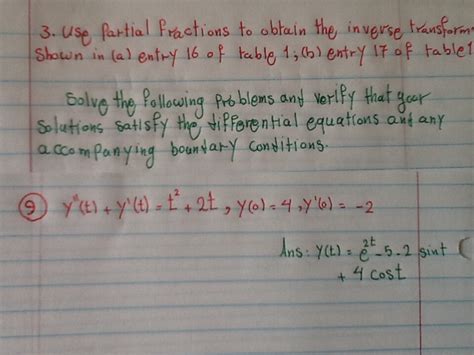 3. Use Partial Fractions to obtain the inverse transform
Shown in (a) entry 16 of table 1, (b) entry 17 of table 1
Solve the following problems and verify that your
solutions satisfy the differential equations and any
accompanying boundary conditions.
⑨ y"(t) + y'(t) = t² + 2t, y(0) = 4, y'(0) = -2
Ans: y(t) = e^2t - 5 - 2 sint (
+ 4 cost